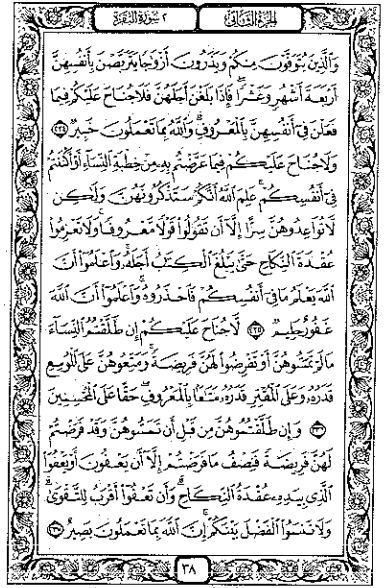 الجزء الثاني
٢ سورة البقرة
وَالَّذِينَ يُتَوَفَّوْنَ مِنكُمْ وَيَذَرُونَ أَزْوَاجًا يَتَرَبَّصْنَ بِأَنفُسِهِنَّ
أَرْبَعَةَ أَشْهُرٍ وَعَشْرًا فَإِذَا بَلَغْنَ أَجَلَهُنَّ فَلَا جُنَاحَ عَلَيْكُمْ فِيمَا
فَعَلْنَ فِي أَنفُسِهِنَّ بِالْمَعْرُوفِ وَاللَّهُ بِمَا تَعْمَلُونَ خَبِيرٌ ٢٣٤
وَلَا جُنَاحَ عَلَيْكُمْ فِيمَا عَرَّضْتُم بِهِ مِنْ خِطْبَةِ النِّسَاءِ أَوْ أَكْنَنتُمْ
فِي أَنفُسِكُمْ عَلِمَ اللَّهُ أَنَّكُمْ سَتَذْكُرُونَهُنَّ وَلَٰكِن
لَّا تُوَاعِدُوهُنَّ سِرًّا إِلَّا أَن تَقُولُوا قَوْلًا مَّعْرُوفًا وَلَا تَعْزِمُوا
عُقْدَةَ النِّكَاحِ حَتَّىٰ يَبْلُغَ الْكِتَابُ أَجَلَهُ وَاعْلَمُوا أَنَّ
اللَّهَ يَعْلَمُ مَا فِي أَنفُسِكُمْ فَاحْذَرُوهُ وَاعْلَمُوا أَنَّ اللَّهَ
غَفُورٌ حَلِيمٌ ٢٣٥ لَّا جُنَاحَ عَلَيْكُمْ إِن طَلَّقْتُمُ النِّسَاءَ
مَا لَمْ تَمَسُّوهُنَّ أَوْ تَفْرِضُوا لَهُنَّ فَرِيضَةً وَمَتِّعُوهُنَّ عَلَى الْمُوسِعِ
قَدَرُهُ وَعَلَى الْمُقْتِرِ قَدَرُهُ مَتَاعًا بِالْمَعْرُوفِ حَقًّا عَلَى الْمُحْسِنِينَ
٢٣٦ وَإِن طَلَّقْتُمُوهُنَّ مِن قَبْلِ أَن تَمَسُّوهُنَّ وَقَدْ فَرَضْتُمْ
لَهُنَّ فَرِيضَةً فَنِصْفُ مَا فَرَضْتُمْ إِلَّا أَن يَعْفُونَ أَوْ يَعْفُوَا
الَّذِي بِيَدِهِ عُقْدَةُ النِّكَاحِ وَأَن تَعْفُوا أَقْرَبُ لِلتَّقْوَىٰ
وَلَا تَنسَوُا الْفَضْلَ بَيْنَكُمْ إِنَّ اللَّهَ بِمَا تَعْمَلُونَ بَصِيرٌ ٢٣٧
٣٨